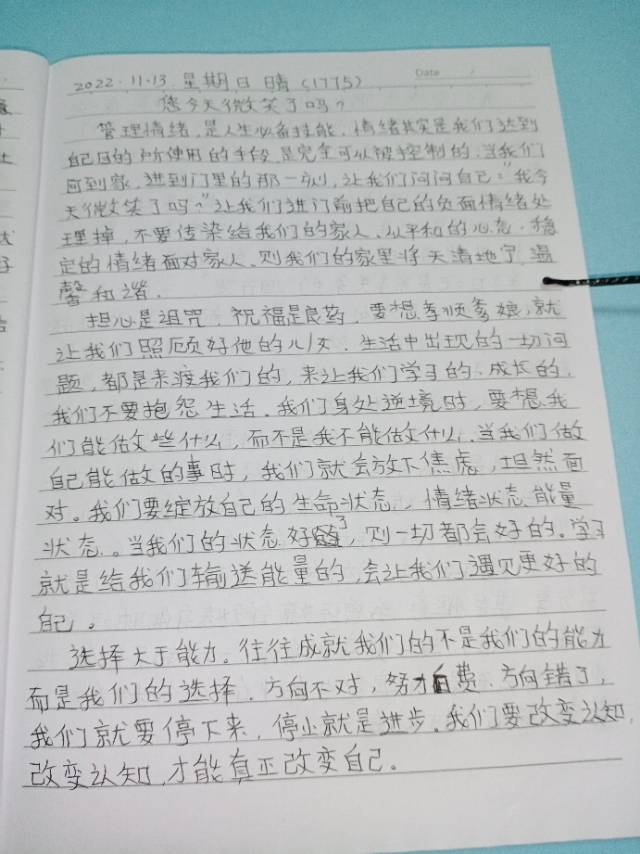 Date
2022.11.13 星期日 晴 (1775)
您今天微笑了吗?
管理情绪,是人生必备技能,情绪其实是我们达到
自己目的所使用的手段,是完全可以被控制的,当我们
回到家,进到门里的那一刻,让我们问问自己:"我今
天微笑了吗?"让我们进门前把自己的负面情绪处
理掉,不要传染给我们的家人,以平和的心态,稳
定的情绪面对家人,则我们的家里将天清地宁,温
馨和谐.
担心是诅咒,祝福是良药,要想孝顺爹娘,就
让我们照顾好他的儿女.生活中出现的一切问
题,都是来渡我们的,来让我们学习的.成长的,
我们不要抱怨生活,我们身处逆境时,要想我
们能做些什么,而不是我不能做什么.当我们做
自己能做的事时,我们就会放下焦虑,坦然面
对。我们要绽放自己的生命状态,情绪状态能量
状态。当我们的状态好了,则一切都会好的。学习
就是给我们输送能量的,会让我们遇见更好的
自己。
选择大于能力。往往成就我们的不是我们的能力
而是我们的选择.方向不对,努力白费.方向错了,
我们就要停下来,停止就是进步。我们要改变认知,
改变认知,才能真正改变自己。